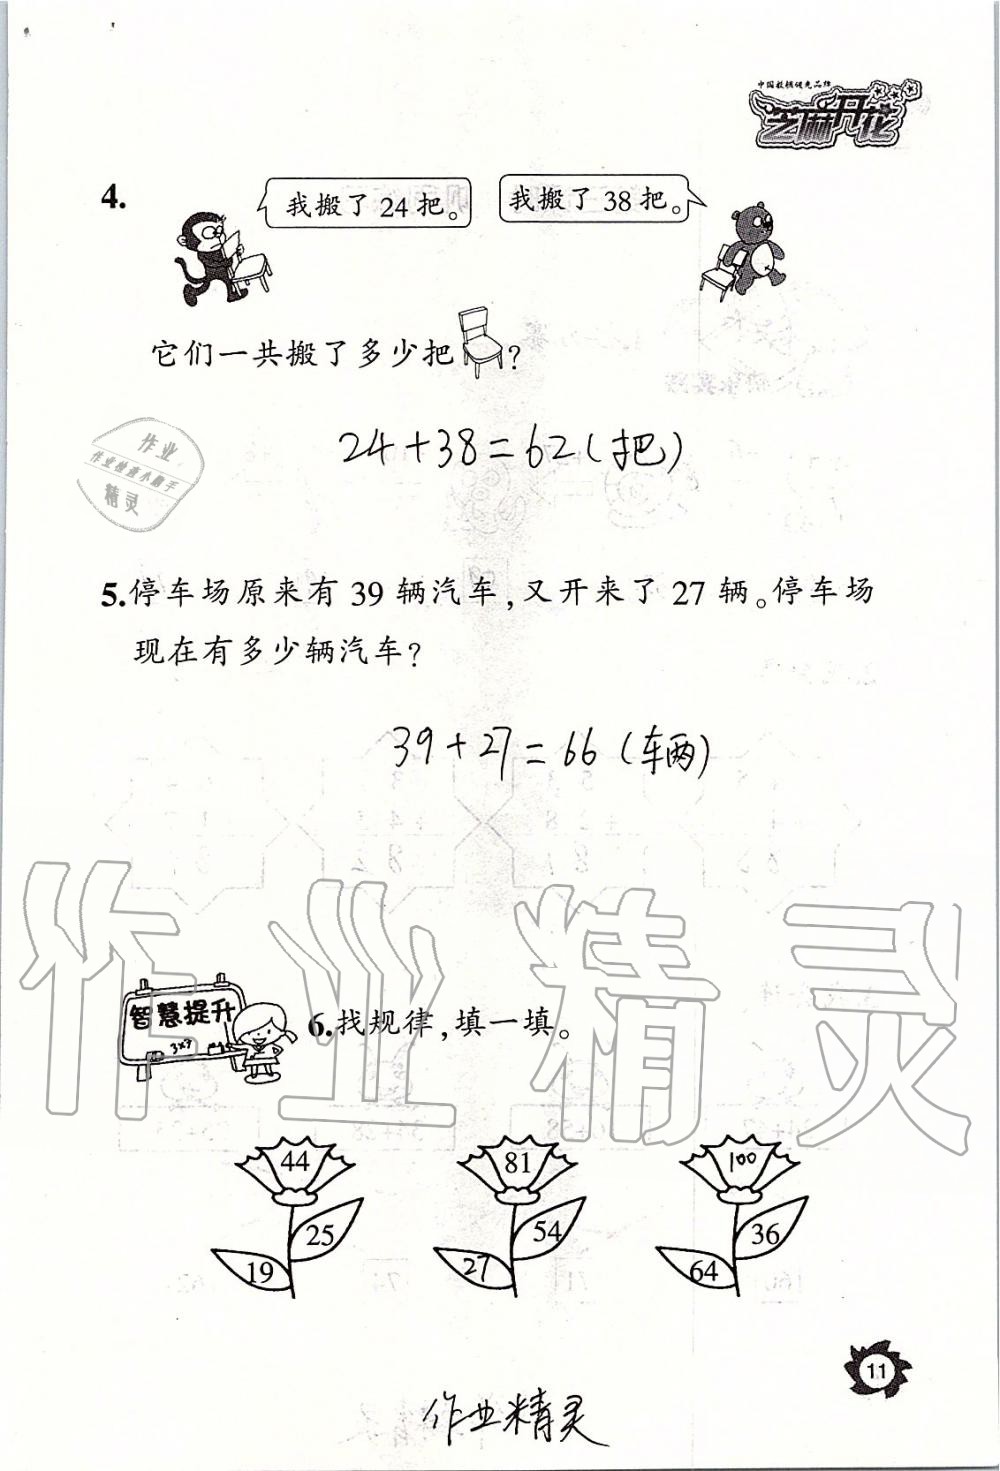 中国教辅领先品牌
芝麻开花
4.
我搬了24把。
我搬了38把。
它们一共搬了多少把?
24+38=62(把)
作业
作业检查小帮手
精灵
5.停车场原来有39辆汽车,又开来了27辆。停车场
现在有多少辆汽车?
39+27=66(车两)
作业精灵
智慧提升
3×7
6.找规律,填一填。
44 81 100
25 54 36
19 27 64
11
作业精灵